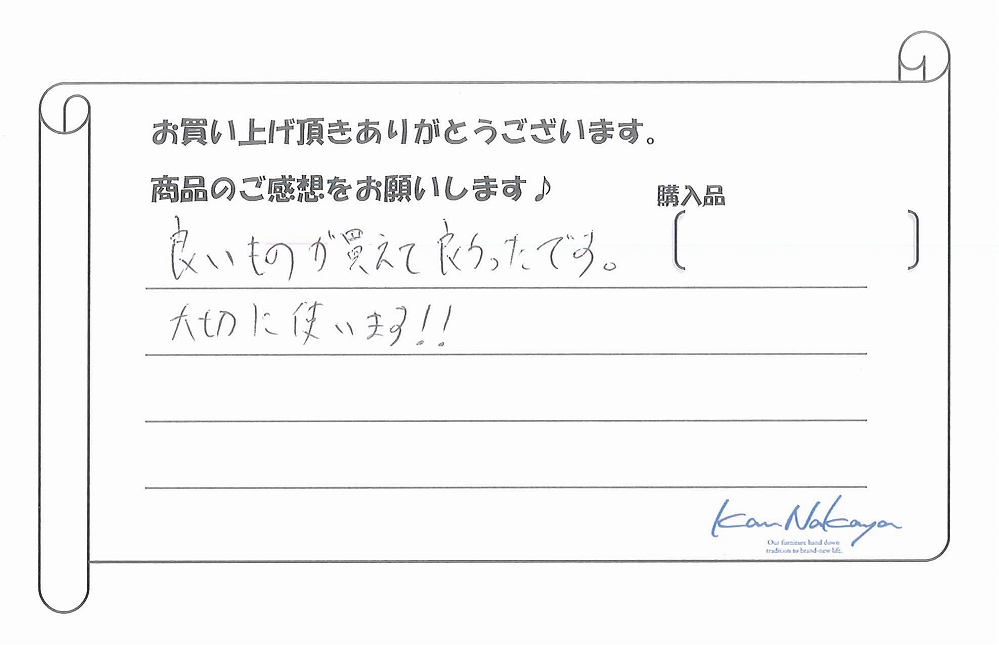 お買い上げ頂きありがとうございます。
商品のご感想をお願いします♪
購入品
良いものが買えて良かったです。
大切に使います!!
Kan Nakaya
Our furniture hand down
tradition to brand-new life.